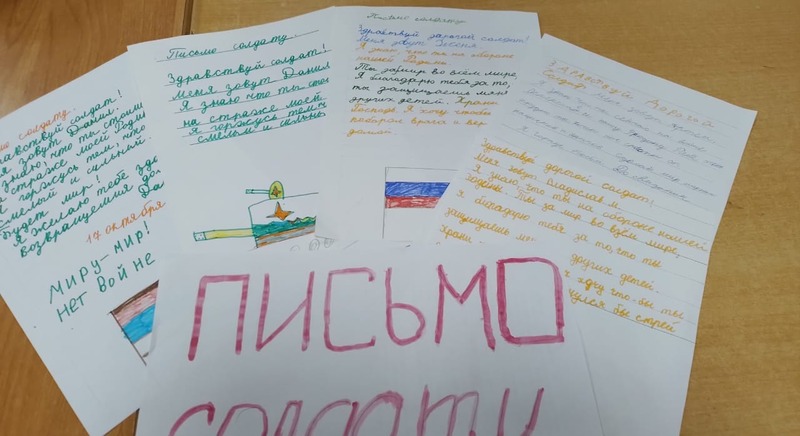 Письмо солдату...
Здравствуй солдат!
Меня зовут Данил.
Я знаю что ты стои
на страже моей Роди
Я горжусь тем, что
смелый и сильный.
Будет мир!
Я желаю тебе здо
возвращения до
Да
17 октября
Миру-мир!
Нет войне
Письмо солдату...
Здравствуй солдат!
Меня зовут Данил
Я знаю что ты стои
на страже моей
Я горжусь тем, ч
смелый и сильны
Письмо солдату
Здравствуй дорогой солдат!
Меня зовут Женя
Я знаю что ты на обороне
нашей Родины.
Ты за мир во всём мире,
Я благодарю тебя за то,
ты защищаешь меня
других детей. Храни
Господь. Я хочу чтобы
победил врага и вер
домой.
Здравствуй Дорогой
Солдат
Здравствуй дорогой солдат!
Меня зовут Владислав м.
Я знаю, что ты на обороне нашей
Родины. Ты за мир во всём мире,
я благодарю тебя за то, что ты
защищаешь ме
других детей.
Храни
хочу что-бы ты
нулся бы скорей
ПИСЬМО
СОЛДАТУ